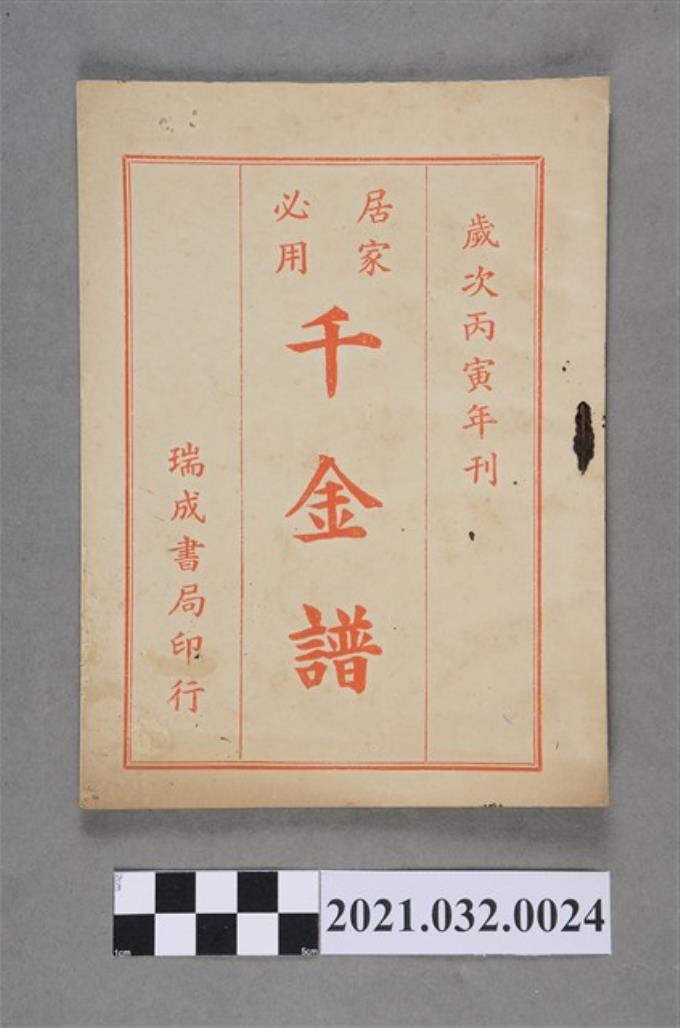 歲次丙寅年刊
居家
必用
千金譜
瑞成書局印行
2cm
1cm
5cm
2021.032.0024